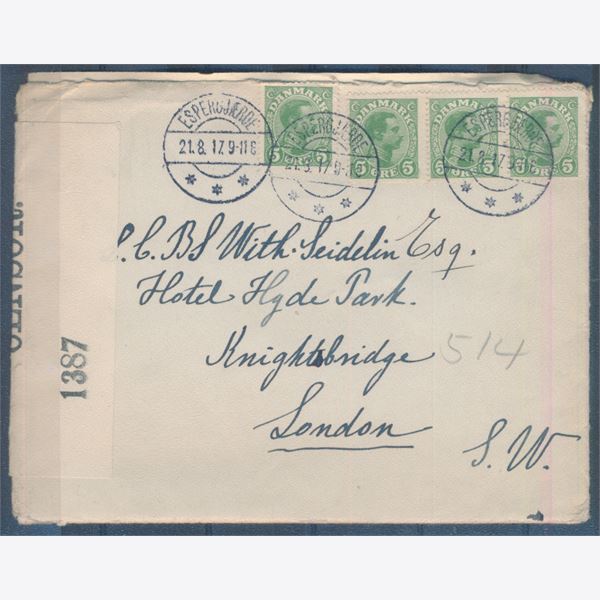 DANMARK DANMARK DANMARK DANMARK
5 ØRE 5 ØRE 5 ØRE 5
ESPERGJÆRDE
21.8.17. 9-11 E
ESPERGJÆRDE
21.8.17. 9-11 E
ESPERGJÆRDE
21.8.17. 9-11 E
C. BS With-Seidelin Esq.
Hotel Hyde Park.
Knightsbridge 514
London
S. W.
CENSOR.
1387